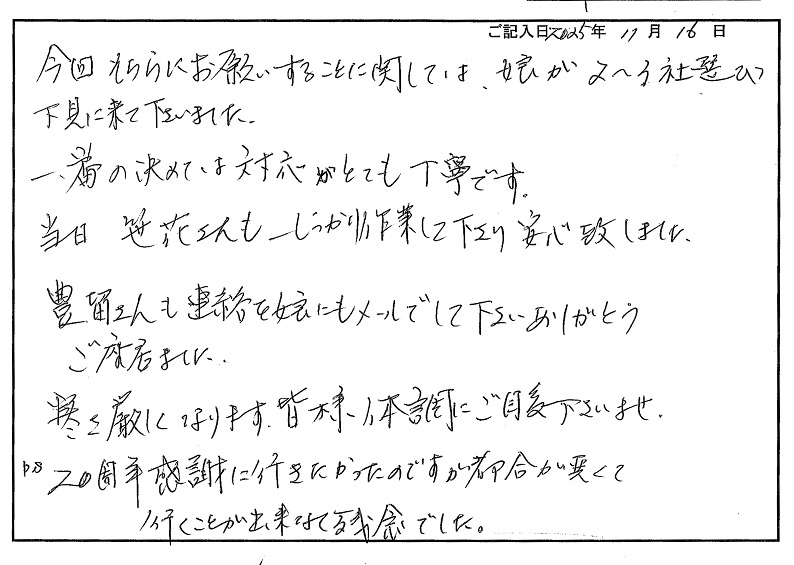 ご記入日 2025年 11月 16日
今回 そちらにお願いすることに関しては、娘が 2〜3社選び
下見に来て下さいました。
一番の決めては 対応がとても丁寧です。
当日 笹花さんも しっかり作業して下さり 安心致しました。
豊留さんも連絡を娘にもメールでして下さいありがとう
ございました。
寒さ厳しくなります。皆様、体調にご自愛下さいませ。
P.S 20周年感謝に行きたかったのですが都合が悪くて
行くことが出来なくて残念でした。